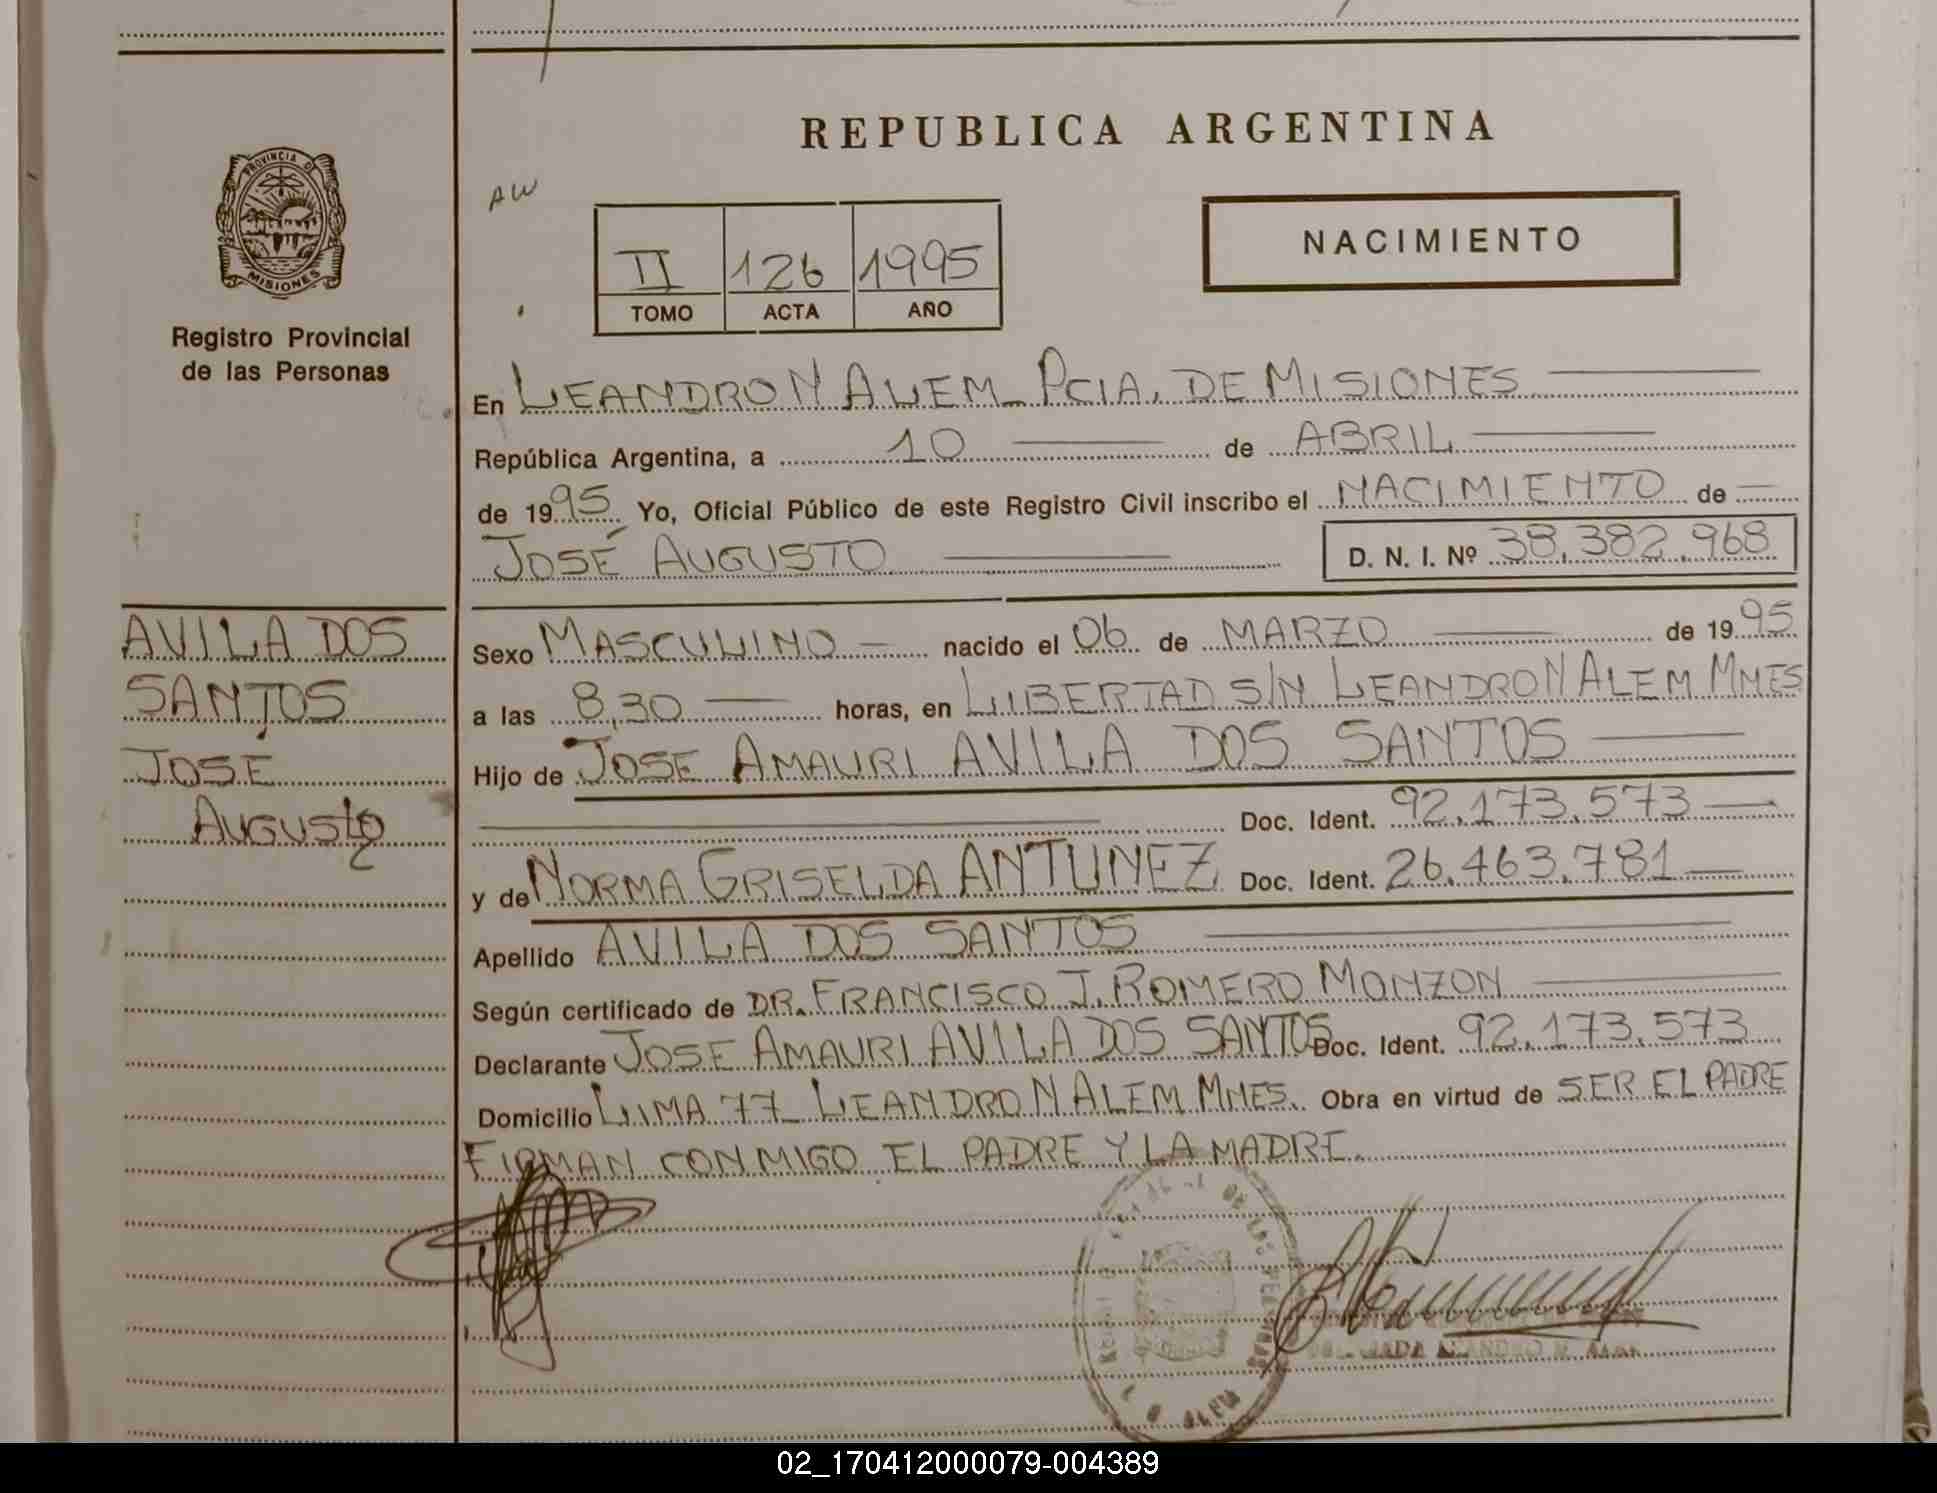 REPUBLICA ARGENTINA
PROVINCIA DE
MISIONES
Registro Provincial
de las Personas
AW
II 126 1995
TOMO ACTA AÑO
NACIMIENTO
En LEANDRO N ALEM PCIA. DE MISIONES
República Argentina, a 10 de ABRIL
de 1995 Yo, Oficial Público de este Registro Civil inscribo el NACIMIENTO de
JOSÉ AUGUSTO D. N. I. Nº 38.382.968
AVILA DOS
SANTOS
JOSE
AUGUSTO
Sexo MASCULINO nacido el 06 de MARZO de 1995
a las 8,30 horas, en LIBERTAD S/N LEANDRO N ALEM MNES
Hijo de JOSE AMAURI AVILA DOS SANTOS
Doc. Ident. 92.173.573
y de NORMA GRISELDA ANTUNEZ Doc. Ident. 26.463.781
Apellido AVILA DOS SANTOS
Según certificado de DR. FRANCISCO J. ROMERO MONZON
Declarante JOSE AMAURI AVILA DOS SANTOS Doc. Ident. 92.173.573
Domicilio LIMA 77 LEANDRO N ALEM MNES. Obra en virtud de SER EL PADRE
FIRMAN CONMIGO EL PADRE Y LA MADRE.
02_170412000079-004389